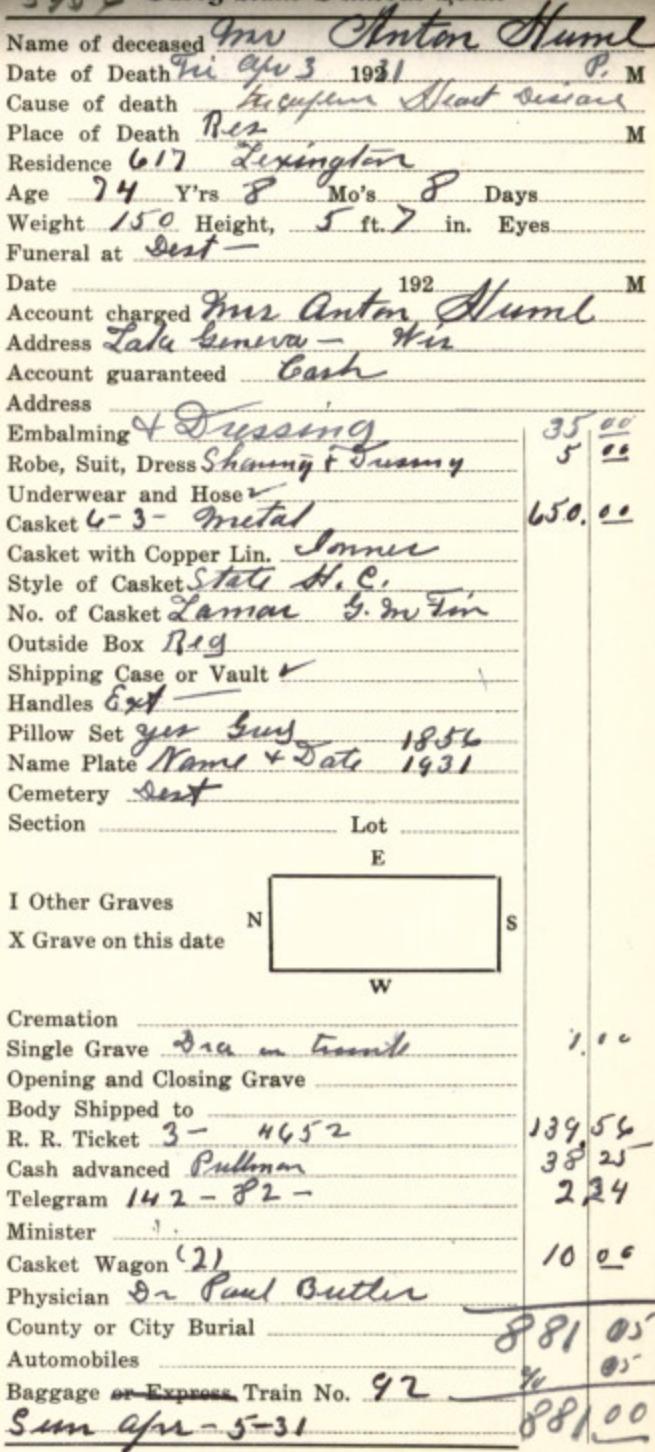 Name of deceased Mr Anton Huml
Date of Death Fri Apr 3 1931 P. M
Cause of death Heart Disease
Place of Death Res M
Residence 617 Lexington
Age 74 Y'rs 8 Mo's 8 Days
Weight 150 Height, 5 ft. 7 in. Eyes
Funeral at Dest —
Date 192 M
Account charged Mrs Anton Huml
Address Lake Geneva — Wis
Account guaranteed Cash
Address
Embalming & Dressing 35 00
Robe, Suit, Dress Shaving & Dressing 5 00
Underwear and Hose ✓
Casket 6-3- Metal 650. 00
Casket with Copper Lin. Inner
Style of Casket State H. C.
No. of Casket Lamar G. M Fin
Outside Box Reg
Shipping Case or Vault ✓
Handles Ext —
Pillow Set yes 1856
Name Plate Name & Date 1931
Cemetery Dest
Section Lot
E
I Other Graves
N S
X Grave on this date
W
Cremation
Single Grave 1.00
Opening and Closing Grave
Body Shipped to
R. R. Ticket 3- 4652 139,56
Cash advanced Pullman 38 25
Telegram 142 - 82 - 2,24
Minister
Casket Wagon (2) 10 00
Physician Dr Paul Butler
County or City Burial 881 05
Automobiles 05
Baggage or Express Train No. 92
Sun Apr-5-31 881 00